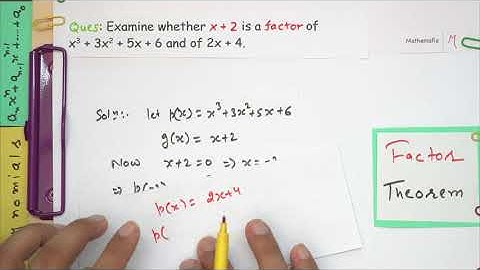 Ques: Examine whether x + 2 is a factor of
x³ + 3x² + 5x + 6 and of 2x + 4.
Mathematify
Solⁿ:- let p(x) = x³+3x²+5x+6
g(x) = x+2
Now x+2=0 ⇒ x=-2
p(x) = 2x+4
p(
Factor
Theorem
aₙxⁿ+aₙ₋₁xⁿ⁻¹+...+a₀
nomials